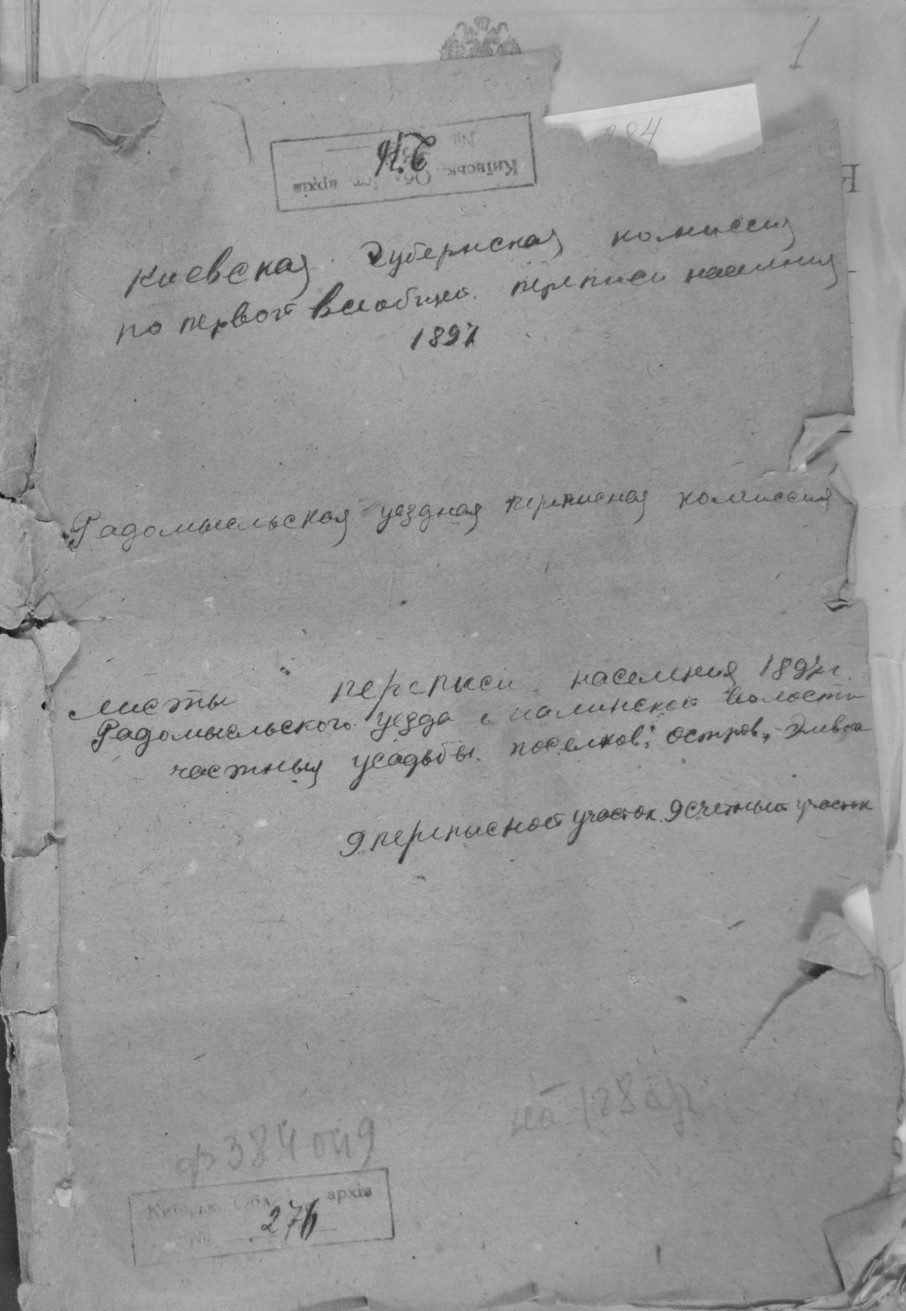 1
284
Київськ. Обл. іст. архів
№ 276
Киевская губернская комиссия
по первой всеобщей переписи населения
1897
Радомысльская уездная переписная комиссия
Листы переписи населения 1897 г.
Радомысльского уезда Малинской волости
частных усадьбы поселков: Остров,
9 переписной участок 9 счетный участок
на 128 ар.
ф 384 оп 9
Київськ. Обл. архів
№ 276